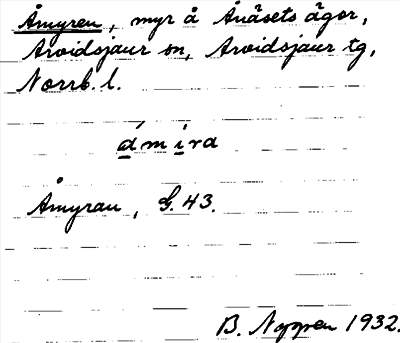 Åmyren, myr å Ånäsets ägor,
Arvidsjaur sn, Arvidsjaur tg,
Norrb. l.
ámira
Åmyrau, G. 43.
B. Nygren 1932.